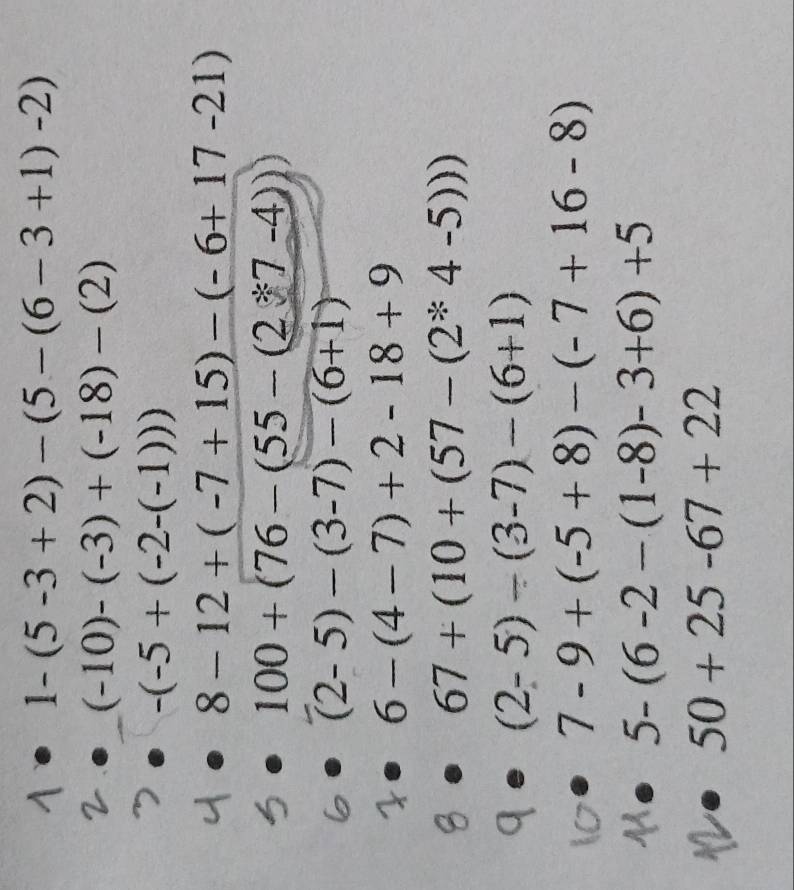 1 • 1- (5 -3 + 2) – (5 – (6 – 3 +1) -2)
2 • (-10)- (-3) + (-18) – (2)
3 • -(-5 + (-2-(-1))))
4 • 8 – 12 + ( -7 + 15) – (- 6+ 17 -21)
5 • 100 + (76 – (55 – (2 *7 -4)))
6 • (2- 5) – (3-7) – (6+1)
7 • 6 – (4 – 7) + 2 - 18 + 9
8 • 67 + (10 + (57 – (2* 4 -5))))
9 • (2- 5) – (3-7) – (6+1)
10 • 7 - 9 + (-5 + 8) – (- 7 + 16 - 8)
11 • 5- (6 -2 – (1-8)- 3+6) +5
12 • 50 + 25 -67 + 22